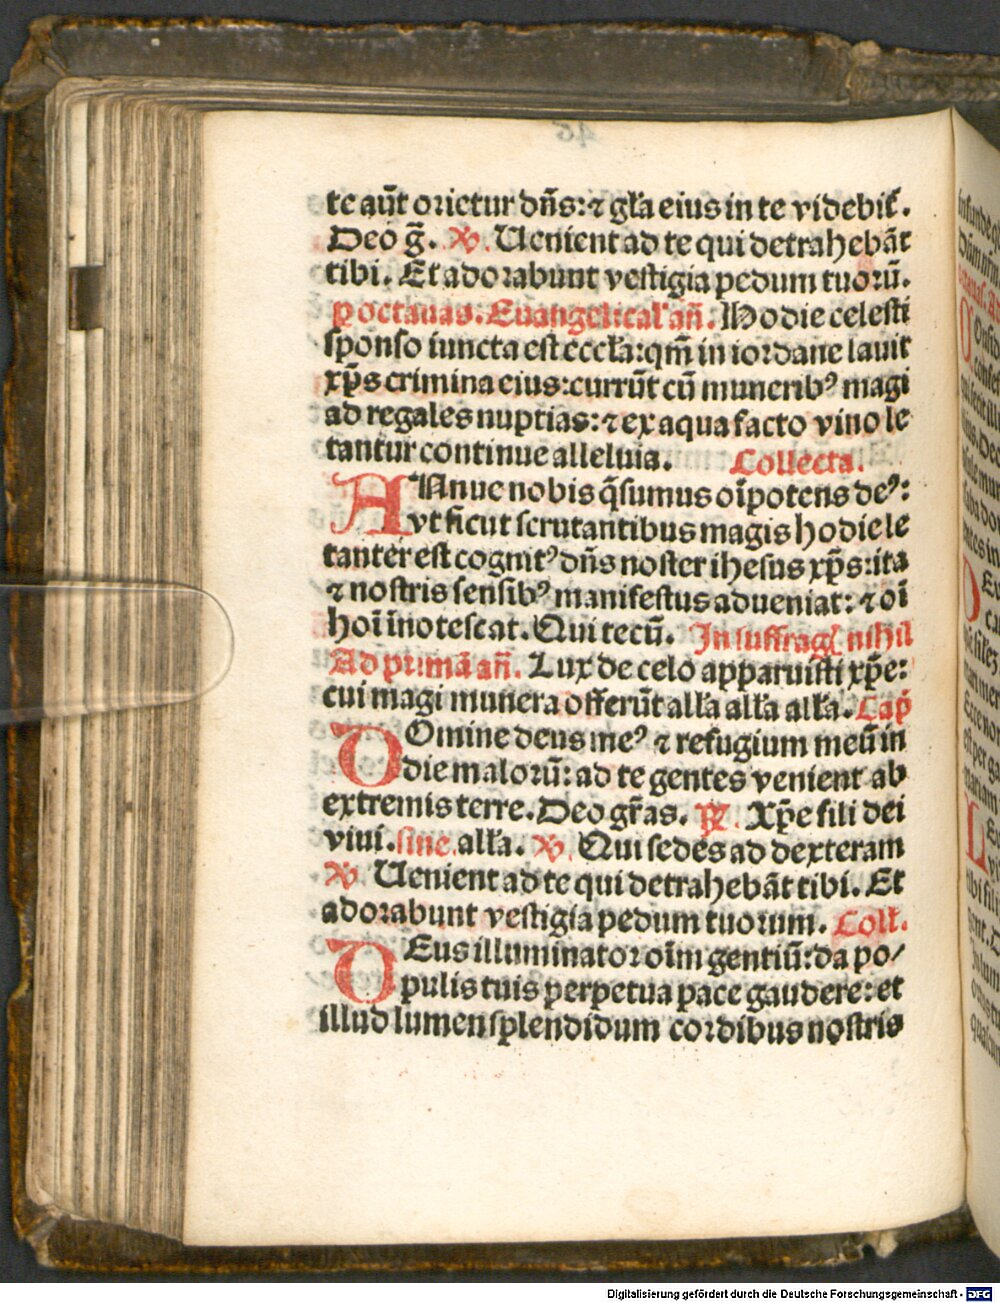 te aūt orietur dn̄s: ⁊ gl̄a eius in te videbit̄.
Deo g̅. ℣. Uenient ad te qui detrahebāt
tibi. Et adorabunt vestigia pedum tuorū.
ꝑ octauas. Euangelical' an̄. Hodie celesti
sponso iuncta est eccl̄a: qm̄ in iordane lauit
xp̄s crimina eius: currūt cū munerib⁹ magi
ad regales nuptias: ⁊ ex aqua facto vino le
tantur continue alleluia. Collecta.
ANnue nobis q̄sumus oīpotens de⁹:
vt sicut scrutantibus magis hodie le
tanter est cognit⁹ dn̄s noster ihesus xp̄s: ita
⁊ nostris sensib⁹ manifestus adueniat: ⁊ oī
hoī īnotescat. Qui tecū. In suffraḡ nihil
Ad primā an̄. Lux de celo apparuisti xp̄e:
cui magi munera offerūt all'a all'a all'a. Cap̄
DOmine deus me⁹ ⁊ refugium meū in
die malorū: ad te gentes venient ab
extremis terre. Deo gr̄as. ℟. Xp̄e fili dei
viui. sine. all'a. ℣. Qui sedes ad dexteram
℣. Uenient ad te qui detrahebāt tibi. Et
adorabunt vestigia pedum tuorum. Coll.
DEus illuminator oīm gentiū: da po/
pulis tuis perpetua pace gaudere: et
illud lumen splendidum cordibus nostris
Digitalisierung gefördert durch die Deutsche Forschungsgemeinschaft - DFG